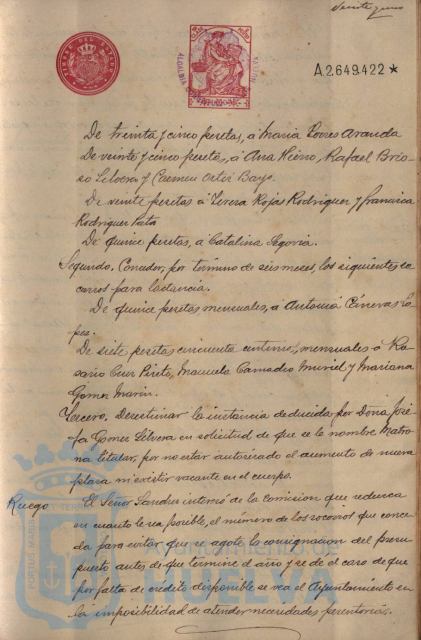 Veinte y uno
TIMBRE DEL ESTADO
A.2.649.422 *
De treinta y cinco pesetas, a Maria Torres Aranda
De veinte y cinco pesetas, a Ana Rafael
y Carmen Ortiz
De veinte pesetas a Teresa Rojas Rodriguez y Francisca
Rodriguez
De quince pesetas, a Catalina Segovia.
Segundo. Conceder, por termino de seis meses, los siguientes so
corros para lactancia.
De quince pesetas mensuales, a Antonia Cineras Lo
pez.
De siete pesetas cincuenta centimos, mensuales a Ro
sario Cruz Prieto, Manuela Camacho Muriel y Mariana
Gomez Marin.
Tercero. Desestimar la instancia deducida por Doña Jose
fa Gomez Silvera en solicitud de que se le nombre Matro
na titular, por no estar autorizado el aumento de nueva
plaza ni existir vacante en el cuerpo.
Ruego El Señor Sanchez interesó de la comision que reduzca
en cuanto le sea posible, el número de los socorros que conce
da para evitar que se agote la consignacion del presu
puesto antes de que termine el año y se de el caso de que
por falta de crédito disponible se vea el Ayuntamiento en
la imposibilidad de atender necesidades perentorias.
Ayuntamiento de
HUELVA